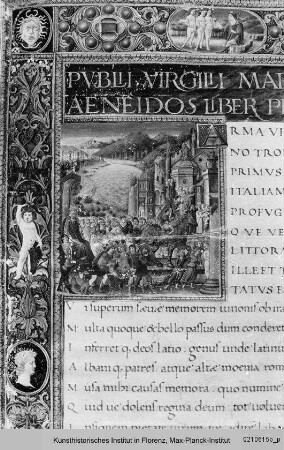 PVBLII VIRGILII MAR
AENEIDOS LIBER PR
RMA VI
NO TRO
PRIMVS
ITALIAM
PROFVG
QVE VE
LITTORA
ILLE ET
TATVS E
V i superum saeuae memorem iunonis ob
M ulta quoque & bello passus dum conderet
I nferret q. deos latio. genus unde latinu
A lbam q. patres atque altae moenia rom
M usa mihi causas memora. quo numine
Q uid ue dolens regina deum tot uoluer
Kunsthistorisches Institut in Florenz, Max-Planck-Institut